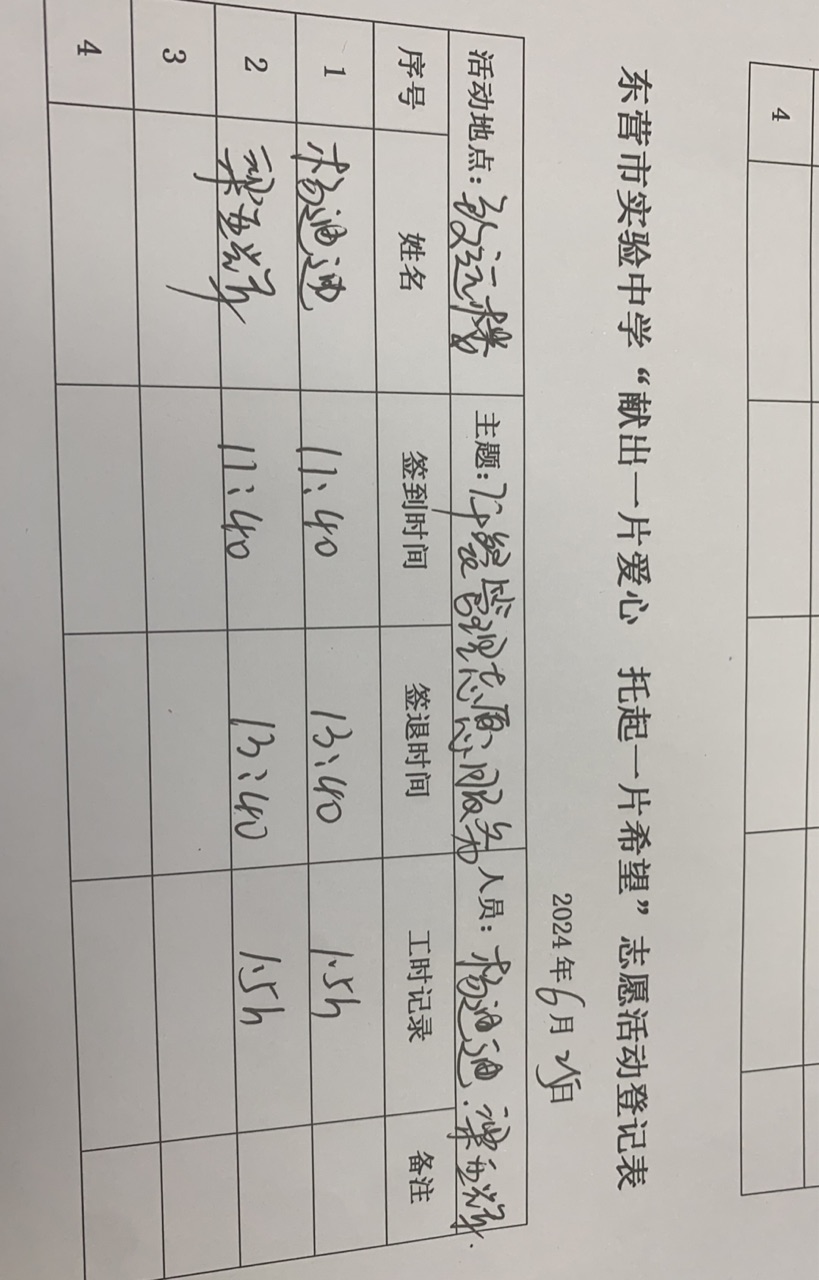 4
东营市实验中学“献出一片爱心 托起一片希望”志愿活动登记表
2024年6月25日
活动地点：致远楼 主题：午餐管理志愿服务 人员：杨迪迪.梁玉岩.
序号 姓名 签到时间 签退时间 工时记录 备注
1 杨迪迪 11:40 13:40 1.5h
2 梁 11:40 13:40 1.5h
3
4